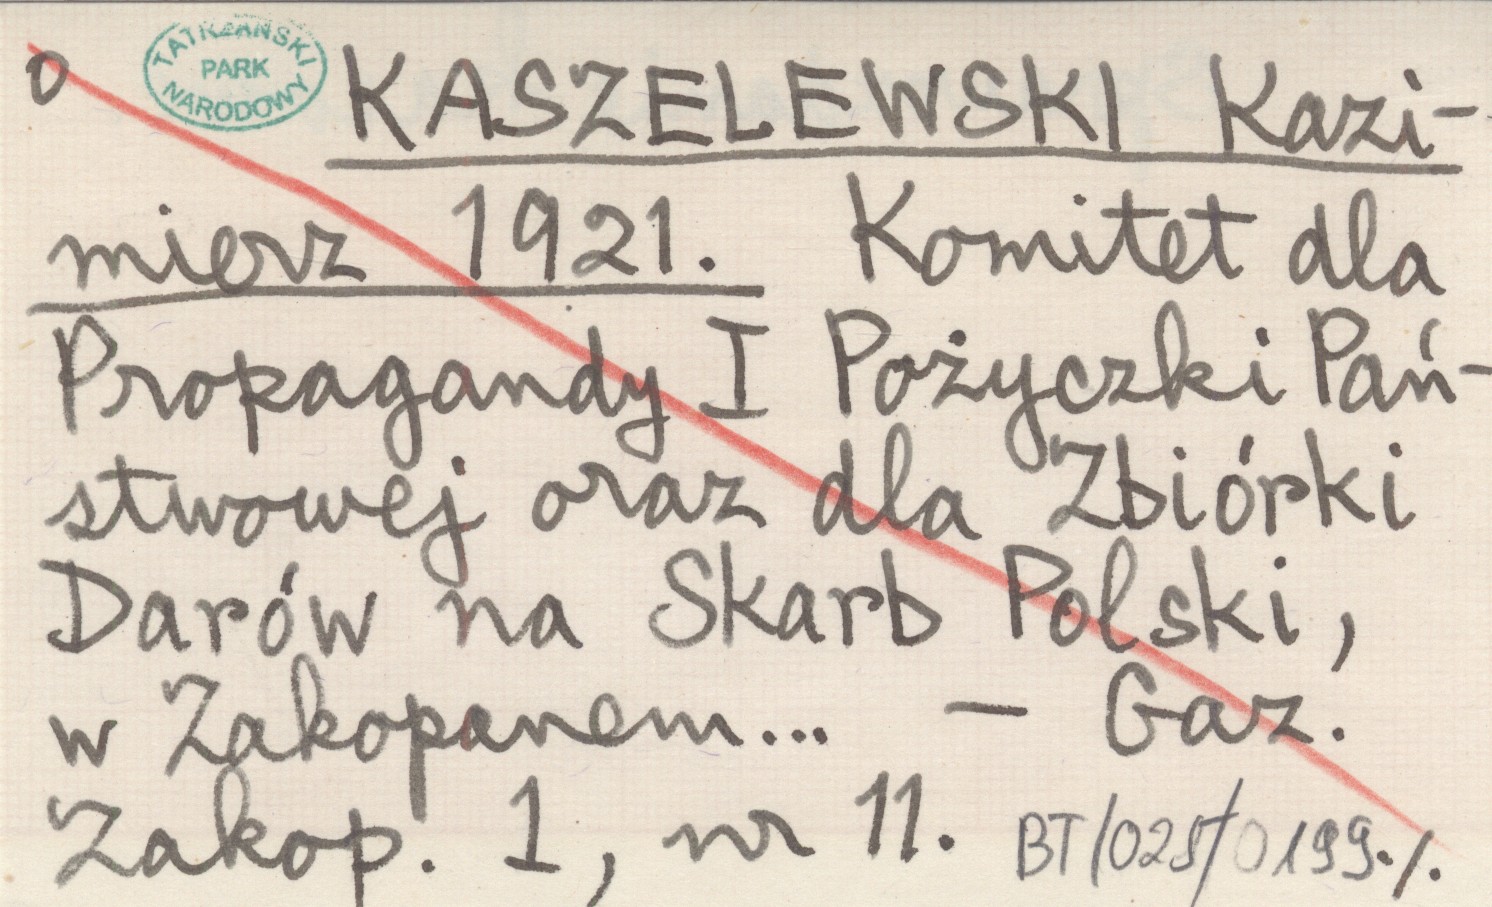 o TATRZAŃSKI PARK NARODOWY KASZELEWSKI Kazi-
mierz 1921. Komitet dla
Propagandy I Pożyczki Pań-
stwowej oraz dla Zbiórki
Darów na Skarb Polski,
w Zakopanem... — Gaz.
Zakop. 1, nr 11. BT/025/0199./.